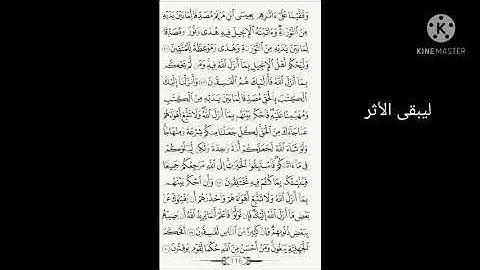 KINEMASTER
وَقَفَّيْنَا عَلَىٰٓ ءَاثَٰرِهِم بِعِيسَى ٱبْنِ مَرْيَمَ مُصَدِّقًا لِّمَا بَيْنَ يَدَيْهِ
مِنَ ٱلتَّوْرَىٰةِ وَءَاتَيْنَٰهُ ٱلْإِنجِيلَ فِيهِ هُدًى وَنُورٌ وَمُصَدِّقًا
لِّمَا بَيْنَ يَدَيْهِ مِنَ ٱلتَّوْرَىٰةِ وَهُدًى وَمَوْعِظَةً لِّلْمُتَّقِينَ ٤٦
وَلْيَحْكُمْ أَهْلُ ٱلْإِنجِيلِ بِمَآ أَنزَلَ ٱللَّهُ فِيهِ وَمَن لَّمْ يَحْكُم
بِمَآ أَنزَلَ ٱللَّهُ فَأُو۟لَٰٓئِكَ هُمُ ٱلْفَٰسِقُونَ ٤٧ وَأَنزَلْنَآ إِلَيْكَ
ٱلْكِتَٰبَ بِٱلْحَقِّ مُصَدِّقًا لِّمَا بَيْنَ يَدَيْهِ مِنَ ٱلْكِتَٰبِ
وَمُهَيْمِنًا عَلَيْهِ فَٱحْكُم بَيْنَهُم بِمَآ أَنزَلَ ٱللَّهُ وَلَا تَتَّبِعْ أَهْوَآءَهُمْ
عَمَّا جَآءَكَ مِنَ ٱلْحَقِّ لِكُلٍّ جَعَلْنَا مِنكُمْ شِرْعَةً وَمِنْهَاجًا
وَلَوْ شَآءَ ٱللَّهُ لَجَعَلَكُمْ أُمَّةً وَٰحِدَةً وَلَٰكِن لِّيَبْلُوَكُمْ
فِى مَآ ءَاتَىٰكُمْ فَٱسْتَبِقُوا۟ ٱلْخَيْرَٰتِ إِلَى ٱللَّهِ مَرْجِعُكُمْ جَمِيعًا
فَيُنَبِّئُكُم بِمَا كُنتُمْ فِيهِ تَخْتَلِفُونَ ٤٨ وَأَنِ ٱحْكُم بَيْنَهُم
بِمَآ أَنزَلَ ٱللَّهُ وَلَا تَتَّبِعْ أَهْوَآءَهُمْ وَٱحْذَرْهُمْ أَن يَفْتِنُوكَ عَنۢ
بَعْضِ مَآ أَنزَلَ ٱللَّهُ إِلَيْكَ فَإِن تَوَلَّوْا۟ فَٱعْلَمْ أَنَّمَا يُرِيدُ ٱللَّهُ أَن يُصِيبَهُم
بِبَعْضِ ذُنُوبِهِمْ وَإِنَّ كَثِيرًا مِّنَ ٱلنَّاسِ لَفَٰسِقُونَ ٤٩ أَفَحُكْمَ
ٱلْجَٰهِلِيَّةِ يَبْغُونَ وَمَنْ أَحْسَنُ مِنَ ٱللَّهِ حُكْمًا لِّقَوْمٍ يُوقِنُونَ ٥٠
١١٦
ليبقى الأثر